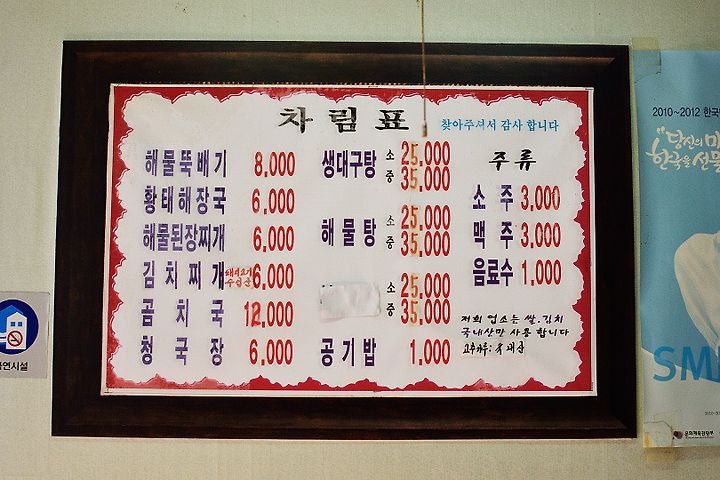 차림표
찾아주셔서 감사 합니다
해물뚝배기 8,000
황태해장국 6,000
해물된장찌개 6,000
김치찌개 돼지고기 6,000
곰치국 12,000
청국장 6,000
생대구탕 소 25,000
중 35,000
해물탕 소 25,000
중 35,000
소 25,000
중 35,000
공기밥 1,000
주류
소주 3,000
맥주 3,000
음료수 1,000
저희 업소는 쌀.김치
국내산만 사용 합니다
고추가루:
금연시설
2010~2012 한국
"당신의 미
한국을 선물
SM
문화체육관광부